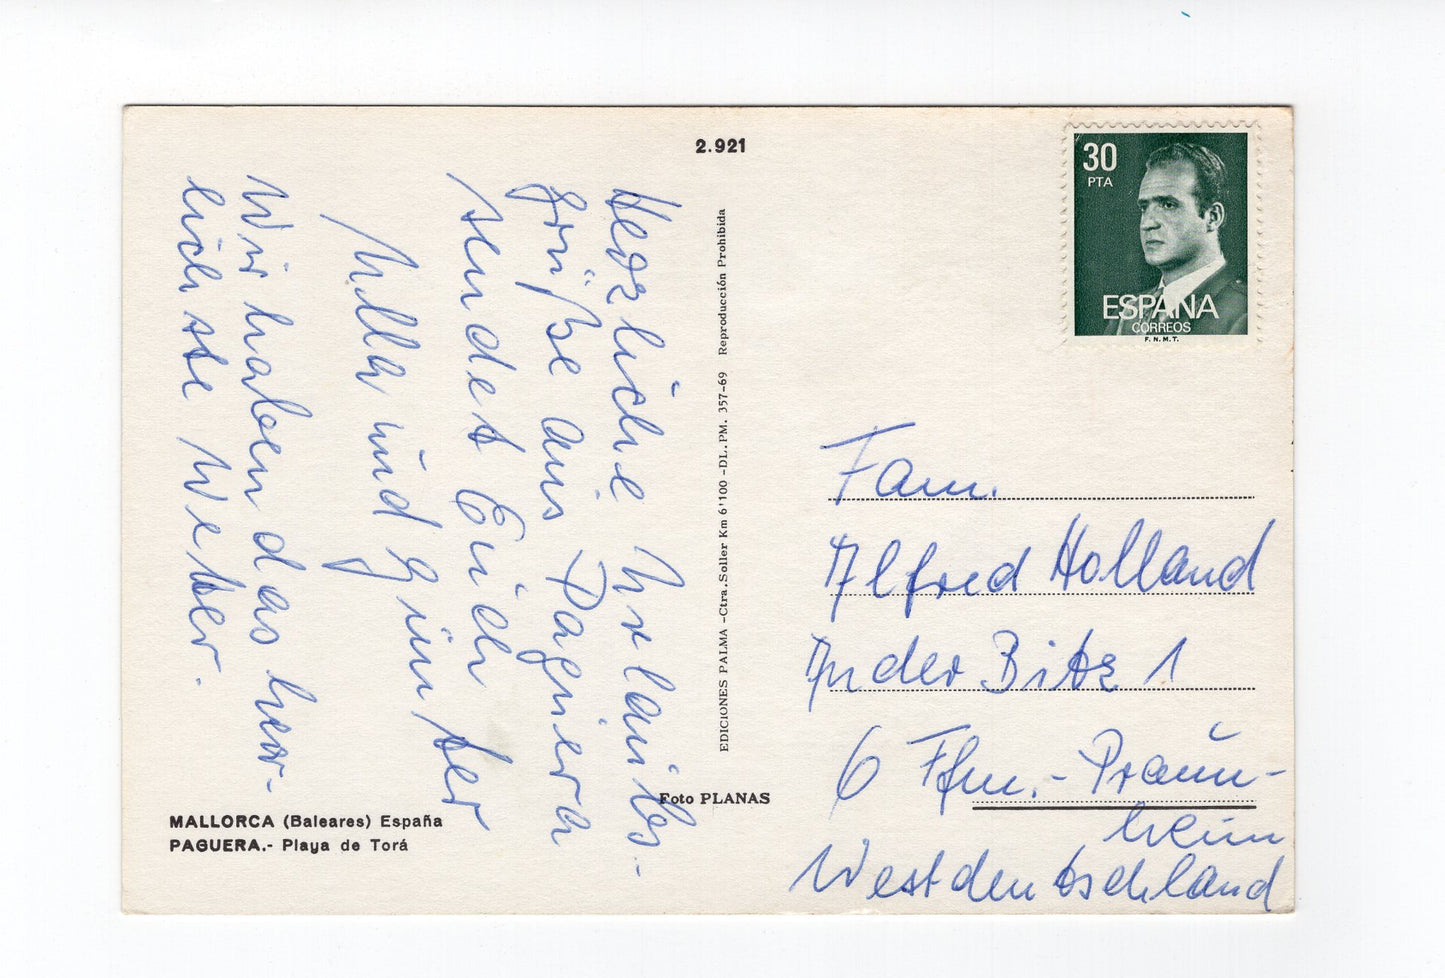 2.921
30
PTA
ESPAÑA
CORREOS
F.N.M.T.
Herzliche Urlaubs-
grüße aus Paguera
sendet Euch
Milla und Günter
Wir haben das herr-
lichste Wetter.
EDICIONES PALMA -Ctra. Soller Km 6'100 -DL. PM. 357-69 Reproducción Prohibida
Foto PLANAS
Fam.
Alfred Holland
An der Bitz 1
6 Ffm.-Praun-
heim
Westdeutschland
MALLORCA (Baleares) España
PAGUERA.- Playa de Torá